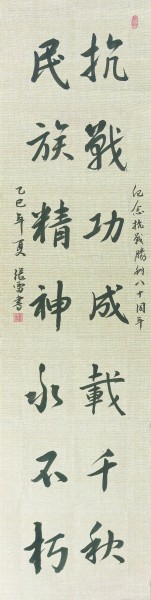 抗戰功成載千秋
民族精神永不朽
紀念抗战勝利八十周年
乙巳年夏 張雪書